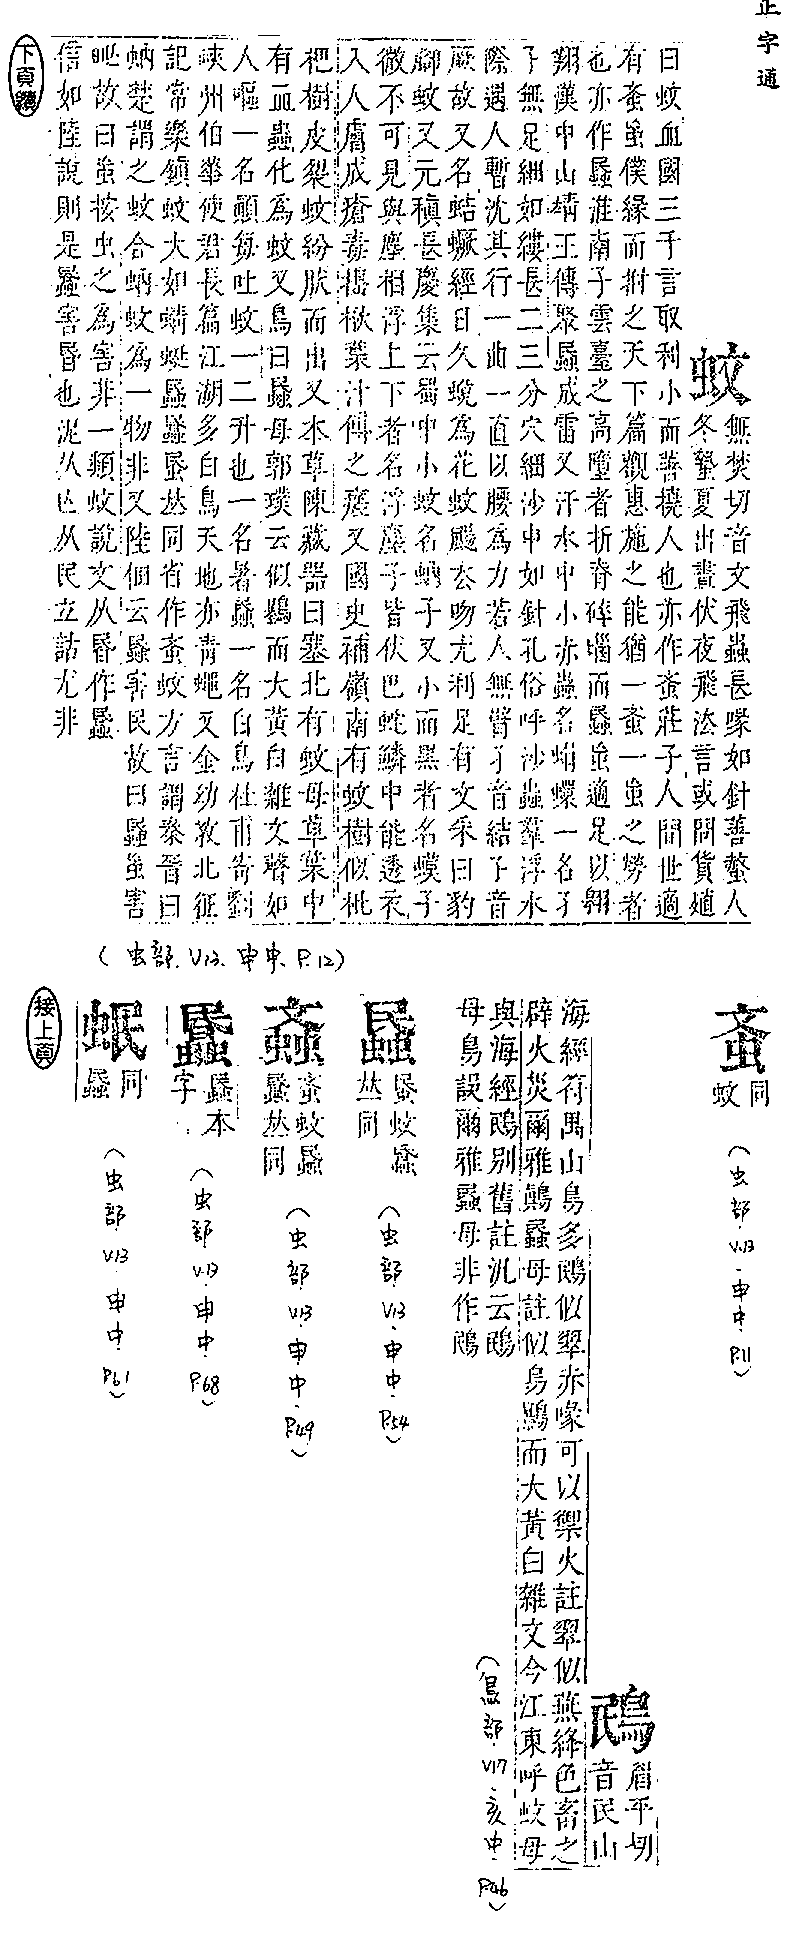 正字通
蚊
無焚切音文飛蟲長喙如針善螫人
冬蟄夏出晝伏夜飛法言或問貨殖
曰蚊血國三千言取利小而善撓人也亦作蚉莊子人間世適
有蚉虽僕緣而拊之天下篇觀惠施之能猶一蚉一虽之勞者
也亦作蟁淮南子雲臺之高墮者折脊碎腦而蟁虽適足以翱
翔漢中山靖王傳聚蟁成雷又汙水中小赤蟲名蛣蟩一名孑
孑無足細如縷長二三分穴細沙中如針孔俗呼沙蟲羣浮水
際遇人暫沈其行一曲一直以腰為力若人無臂孑音結孓音
厥故又名蛣蟩經日久蛻為花蚊颺去吻尤利足有文采曰豹
腳蚊又元稹長慶集云蜀中小蚊名蚋子又小而黑者名蟆子
微不可見與塵相浮上下者名浮塵子皆伏巴蛇鱗中能透衣
入人膚成瘡毒搗楸葉汁傅之瘥又國史補嶺南有蚊樹似枇
杷樹皮裂蚊紛肰而出又本草陳藏器曰塞北有蚊母草葉中
有血蟲化為蚊又鳥曰蟁母郭璞云似鷃而大黃白雜文聲如
人嘔一名鷏每吐蚊一二升也一名暑蟁一名白鳥杜甫寄劉
峽州伯華使君長篇江湖多白鳥天地亦青蠅又金幼孜北征
記常樂鎮蚊大如蜻蜓蟁蟁蟁𠀤同省作蚉蚊方言謂秦晉曰
蚋楚謂之蚊合蚋蚊為一物非又陸佃云蟁害民故曰蟁虽害
甿故曰虽按虫之為害非一類蚊說文从昏作蟁
信如陸說則是蟁害昬也泥从亡从民立詁尤非
下頁續
(虫部.V13.申中.P.12)
蚉
同
蚊
(虫部.V.13.申中.P.11)
鴖
眉平切
音民山
海經符禺山鳥多鴖似翠赤喙可以禦火註翠似燕絳色畜之
辟火災爾雅鷏蟁母註似烏鷃而大黃白雜文今江東呼蚊母
與海經鴖別舊註汎云鴖
母鳥誤爾雅蟁母非作鴖
(鳥部.V17.亥中.P.46)
蟁
蚊
𠀤同
(虫部.V13.申中.P.54)
蚉蚊蟁
𠀤同
(虫部.V13.申中.P.49)
蟁本
字
(虫部.V13.申中.P.68)
蟁
同
蟁
(虫部.V13.申中.P.61)
接上頁